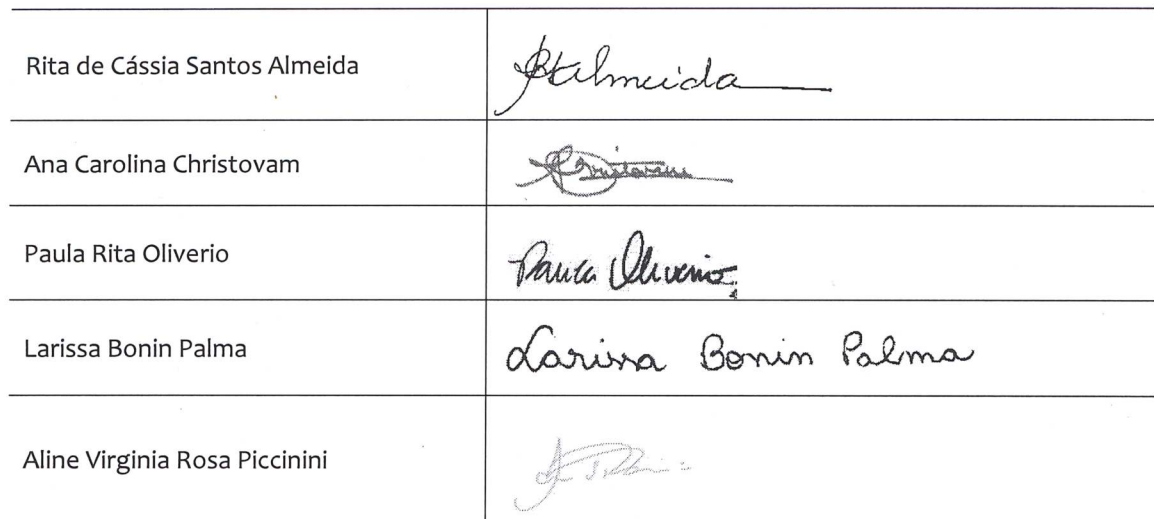 Rita de Cássia Santos Almeida
Almeida
Ana Carolina Christovam
Christovam
Paula Rita Oliverio
Paula Oliverio
Larissa Bonin Palma
Larissa Bonin Palma
Aline Virginia Rosa Piccinini